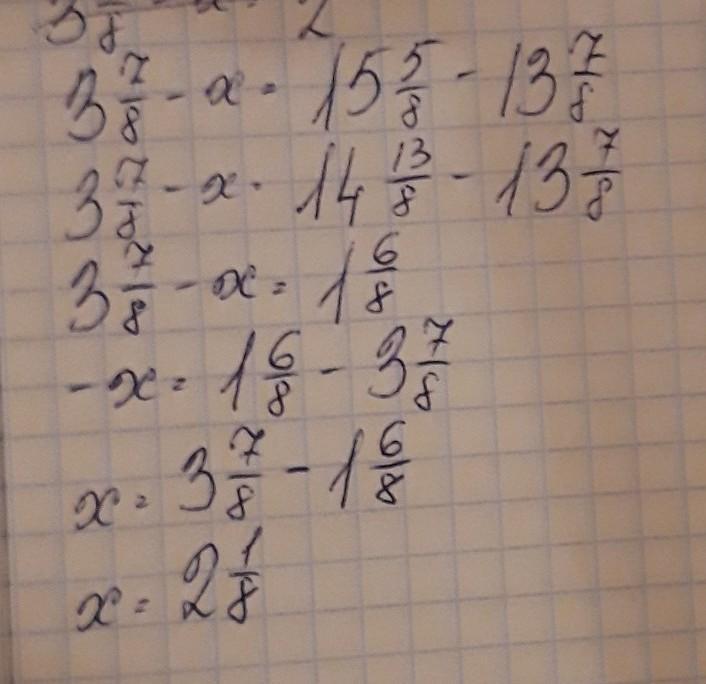 3 7/8 - x = 15 5/8 - 13 7/8
3 7/8 - x = 14 13/8 - 13 7/8
3 7/8 - x = 1 6/8
- x = 1 6/8 - 3 7/8
x = 3 7/8 - 1 6/8
x = 2 1/8